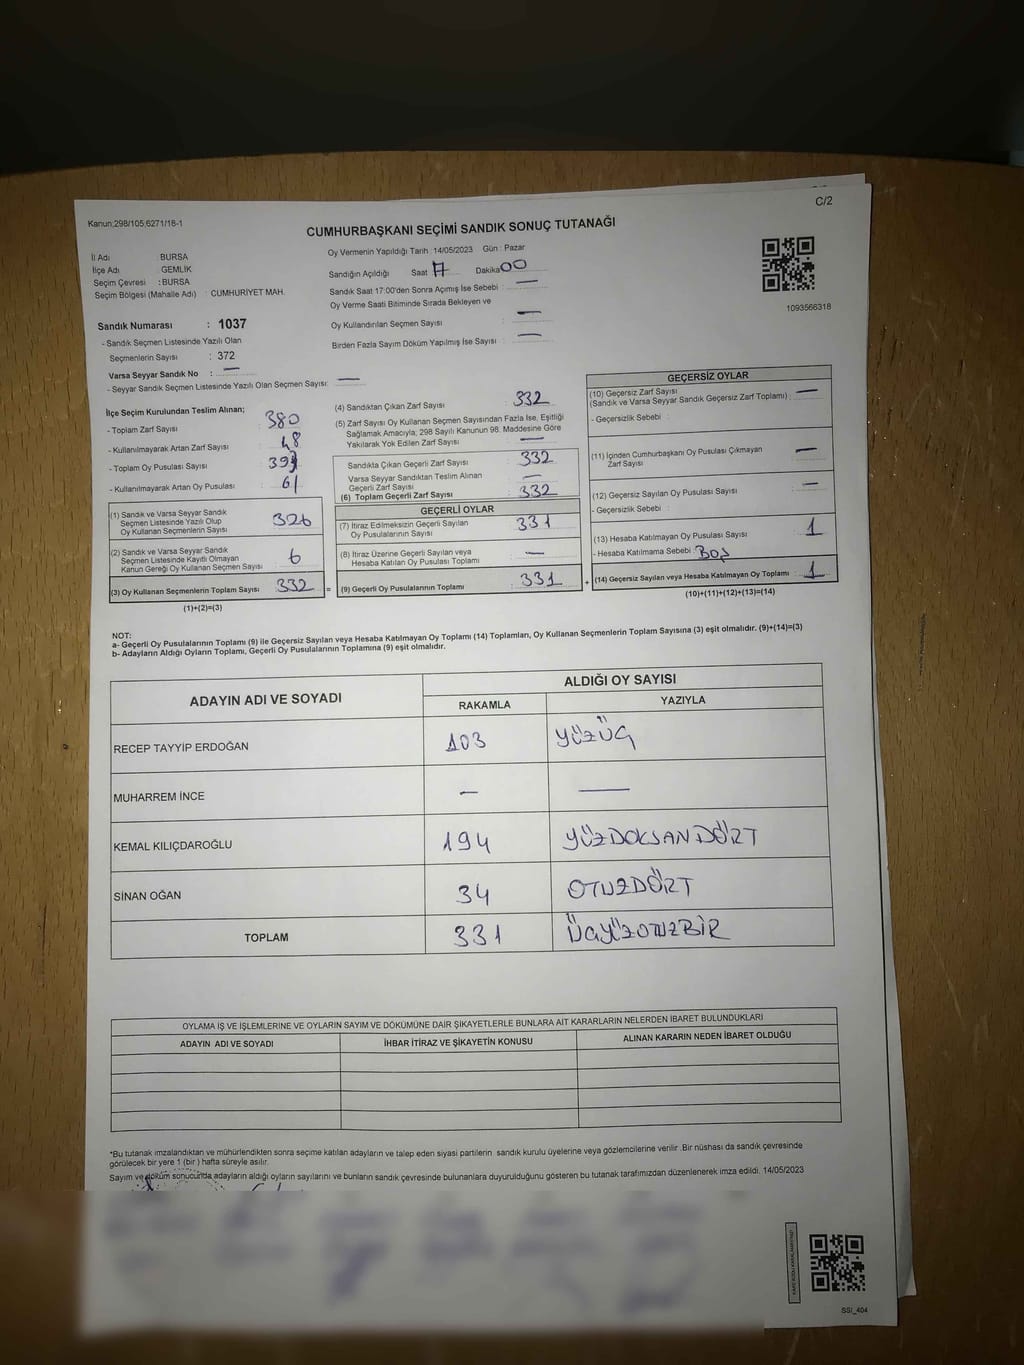 C/2
Kanun;298/105;6271/18-1
CUMHURBAŞKANI SEÇİMİ SANDIK SONUÇ TUTANAĞI
İl Adı : BURSA
İlçe Adı : GEMLİK
Seçim Çevresi : BURSA
Seçim Bölgesi (Mahalle Adı) : CUMHURİYET MAH.
Oy Vermenin Yapıldığı Tarih : 14/05/2023 Gün : Pazar
Sandığın Açıldığı Saat 17 Dakika 00
Sandık Saat 17:00'den Sonra Açımış İse Sebebi : —
Oy Verme Saati Bitiminde Sırada Bekleyen ve
Oy Kullandırılan Seçmen Sayısı : —
Birden Fazla Sayım Döküm Yapılmış İse Sayısı : —
1093566318
Sandık Numarası : 1037
- Sandık Seçmen Listesinde Yazılı Olan
Seçmenlerin Sayısı : 372
Varsa Seyyar Sandık No : —
- Seyyar Sandık Seçmen Listesinde Yazılı Olan Seçmen Sayısı: —
İlçe Seçim Kurulundan Teslim Alınan;
- Toplam Zarf Sayısı : 380
- Kullanılmayarak Artan Zarf Sayısı : 48
- Toplam Oy Pusulası Sayısı : 393
- Kullanılmayarak Artan Oy Pusulası : 61
(1) Sandık ve Varsa Seyyar Sandık
Seçmen Listesinde Yazılı Olup
Oy Kullanan Seçmenlerin Sayısı : 326
(2) Sandık ve Varsa Seyyar Sandık
Seçmen Listesinde Kayıtlı Olmayan
Kanun Gereği Oy Kullanan Seçmen Sayısı : 6
(3) Oy Kullanan Seçmenlerin Toplam Sayısı : 332
(1)+(2)=(3)
(4) Sandıktan Çıkan Zarf Sayısı : 332
(5) Zarf Sayısı Oy Kullanan Seçmen Sayısından Fazla İse, Eşitliği
Sağlamak Amacıyla; 298 Sayılı Kanunun 98. Maddesine Göre
Yakılarak Yok Edilen Zarf Sayısı : —
Sandıkta Çıkan Geçerli Zarf Sayısı : 332
Varsa Seyyar Sandıktan Teslim Alınan
Geçerli Zarf Sayısı : —
(6) Toplam Geçerli Zarf Sayısı : 332
GEÇERLİ OYLAR
(7) İtiraz Edilmeksizin Geçerli Sayılan
Oy Pusulalarının Sayısı : 331
(8) İtiraz Üzerine Geçerli Sayılan veya
Hesaba Katılan Oy Pusulası Toplamı : —
= (9) Geçerli Oy Pusulalarının Toplamı : 331
GEÇERSİZ OYLAR
(10) Geçersiz Zarf Sayısı
(Sandık ve Varsa Seyyar Sandık Geçersiz Zarf Toplamı) : —
- Geçersizlik Sebebi :
(11) İçinden Cumhurbaşkanı Oy Pusulası Çıkmayan
Zarf Sayısı : —
(12) Geçersiz Sayılan Oy Pusulası Sayısı : —
- Geçersizlik Sebebi :
(13) Hesaba Katılmayan Oy Pusulası Sayısı : 1
- Hesaba Katılmama Sebebi : BOŞ
+ (14) Geçersiz Sayılan veya Hesaba Katılmayan Oy Toplamı : 1
(10)+(11)+(12)+(13)=(14)
NOT:
a- Geçerli Oy Pusulalarının Toplamı (9) ile Geçersiz Sayılan veya Hesaba Katılmayan Oy Toplamı (14) Toplamları, Oy Kullanan Seçmenlerin Toplam Sayısına (3) eşit olmalıdır. (9)+(14)=(3)
b- Adayların Aldığı Oyların Toplamı, Geçerli Oy Pusulalarının Toplamına (9) eşit olmalıdır.
ADAYIN ADI VE SOYADI ALDIĞI OY SAYISI
RAKAMLA YAZIYLA
RECEP TAYYİP ERDOĞAN 103 YÜZÜÇ
MUHARREM İNCE — —
KEMAL KILIÇDAROĞLU 194 YÜZDOKSANDÖRT
SİNAN OĞAN 34 OTUZDÖRT
TOPLAM 331 ÜÇYÜZOTUZBİR
OYLAMA İŞ VE İŞLEMLERİNE VE OYLARIN SAYIM VE DÖKÜMÜNE DAİR ŞİKAYETLERLE BUNLARA AİT KARARLARIN NELERDEN İBARET BULUNDUKLARI
ADAYIN ADI VE SOYADI İHBAR İTİRAZ VE ŞİKAYETİN KONUSU ALINAN KARARIN NEDEN İBARET OLDUĞU
*Bu tutanak imzalandıktan ve mühürlendikten sonra seçime katılan adayların ve talep eden siyasi partilerin sandık kurulu üyelerine veya gözlemcilerine verilir .Bir nüshası da sandık çevresinde
görülecek bir yere 1 (bir ) hafta süreyle asılır.
Sayım ve döküm sonucunda adayların aldığı oyların sayılarını ve bunların sandık çevresinde bulunanlara duyurulduğunu gösteren bu tutanak tarafımızdan düzenlenerek imza edildi. 14/05/2023
SSI_404